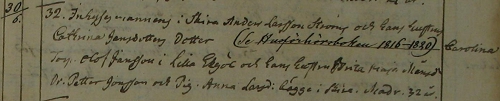 30/6. 32. Inhysesmannens i Skira Anders Larsson Ströms och hans hustrus
Cathrina Jansdotters Dotter (Se Husförhörsboken 1816-1820) Carolina
Test. Olof Jansson i Lilla och hans hustru Brita
Dr. Petter Jonsson och Pig. Anna Larsd: i Skira. Modr. 32 å.